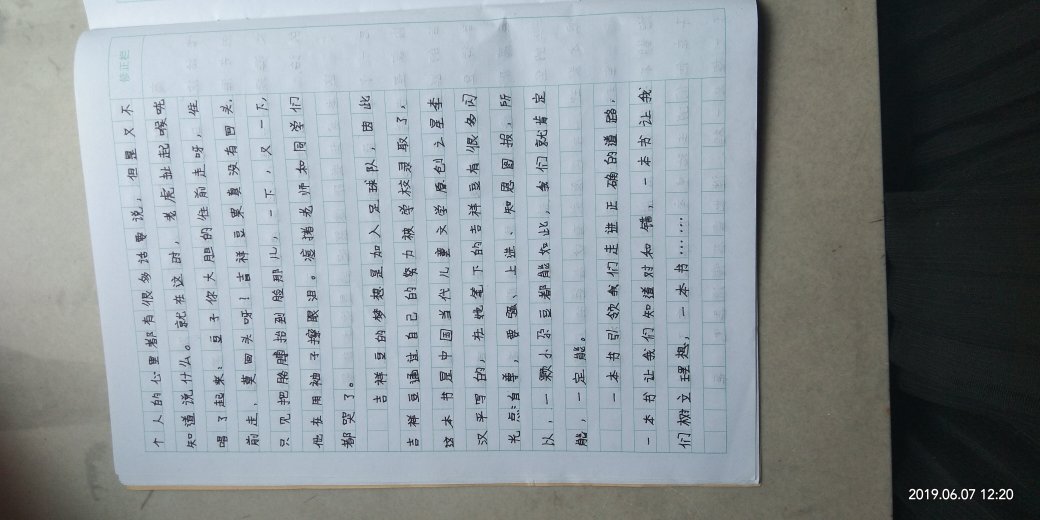 修正栏
个人的心里都有很多话要说，但是又不
知道说什么。就在这时，老虎扯起喉咙
唱了起来：豆子你大胆的往前走呀，往
前走，莫回头呀！吉祥豆果真没有回头，
只见把胳膊抬到脸那儿，一下，又一下，
他在用袖子擦眼泪。惹得老师和同学们
都哭了。
吉祥豆的梦想是加入足球队，因此
吉祥豆通过自己的努力被学校录取了，
这本书是中国当代儿童文学原创之星李
汉平写的，在她笔下的吉祥豆有很多闪
光点：自尊，要强、上进、知恩图报，所
以，一颗小杂豆都能如此，我们就肯定
能，一定能。
一本书引领我们走进正确的道路，
一本书让我们知道对和错，一本书让我
们树立理想，一本书……
2019.06.07 12:20